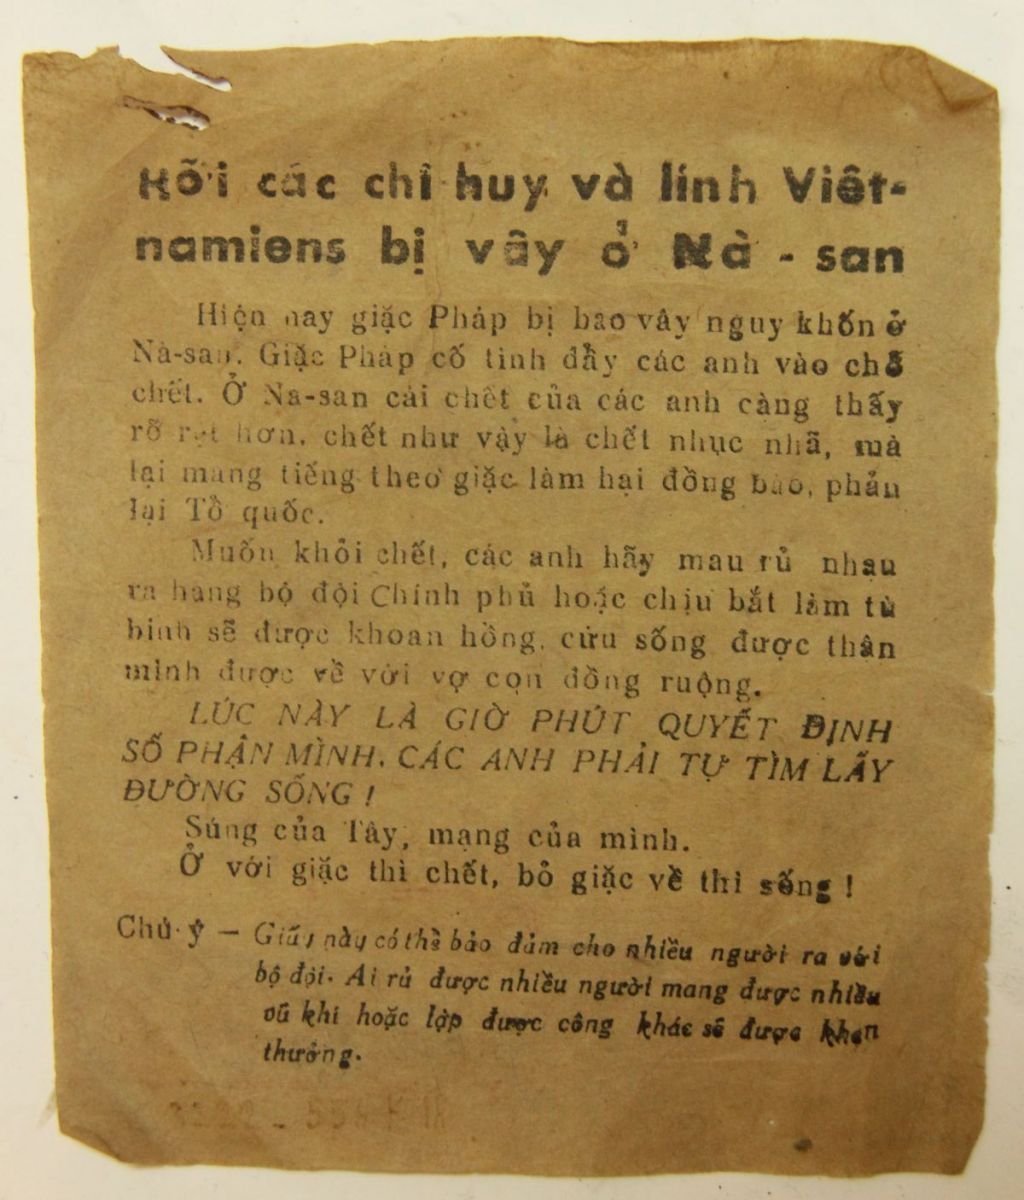 Hỡi các chỉ huy và lính Việt-
namiens bị vây ở Nà - san
Hiện nay giặc Pháp bị bao vây nguy khốn ở
Nà-san. Giặc Pháp cố tình đẩy các anh vào chỗ
chết. Ở Na-san cái chết của các anh càng thấy
rõ rệt hơn, chết như vậy là chết nhục nhã, mà
lại mang tiếng theo giặc làm hại đồng bào, phản
lại Tổ quốc.
Muốn khỏi chết, các anh hãy mau rủ nhau
ra hàng bộ đội Chính phủ hoặc chịu bắt làm tù
binh sẽ được khoan hồng, cứu sống được thân
mình được về với vợ con đồng ruộng.
LÚC NÀY LÀ GIỜ PHÚT QUYẾT ĐỊNH
SỐ PHẬN MÌNH. CÁC ANH PHẢI TỰ TÌM LẤY
ĐƯỜNG SỐNG !
Súng của Tây, mạng của mình.
Ở với giặc thì chết, bỏ giặc về thì sống !
Chú ý — Giấy này có thể bảo đảm cho nhiều người ra với
bộ đội. Ai rủ được nhiều người mang được nhiều
vũ khí hoặc lập được công khác sẽ được khen
thưởng.